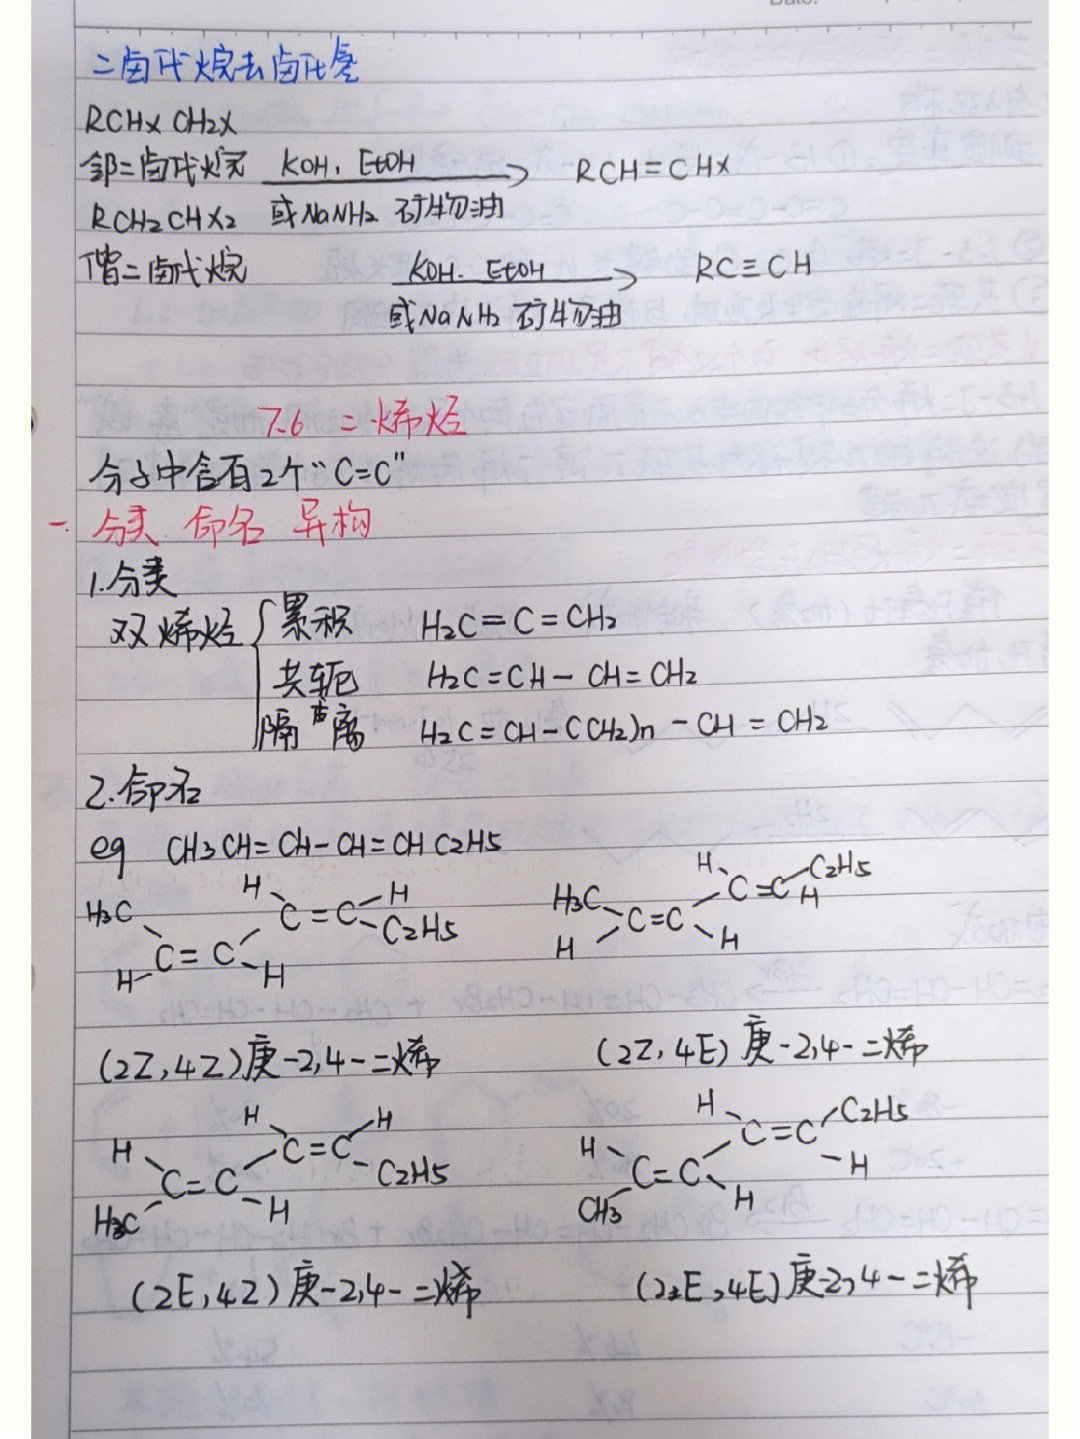 二卤代烷去卤化氢
RCHXCH2X
邻二卤代烷 KOH、EtOH 或NaNH2 矿物油 RCH=CHX
RCH2CHX2
偕二卤代烷 KOH、EtOH 或NaNH2 矿物油 RC≡CH
7.6 二烯烃
分子中含有2个“C=C”
一. 分类 命名 异构
1.分类
双烯烃 累积 H2C=C=CH2
共轭 H2C=CH-CH=CH2
隔离 H2C=CH-(CH2)n-CH=CH2
2.命名
eg CH3CH=CH-CH=CHC2H5
H H H C2H5
H3C C=C C2H5 H3C C=C H
H C=C H H C=C H
(2Z,4Z)庚-2,4-二烯 (2Z,4E)庚-2,4-二烯
H H H C2H5
H C=C C2H5 H C=C H
H3C C=C H CH3 C=C H
(2E,4Z)庚-2,4-二烯 (2E,4E)庚-2,4-二烯